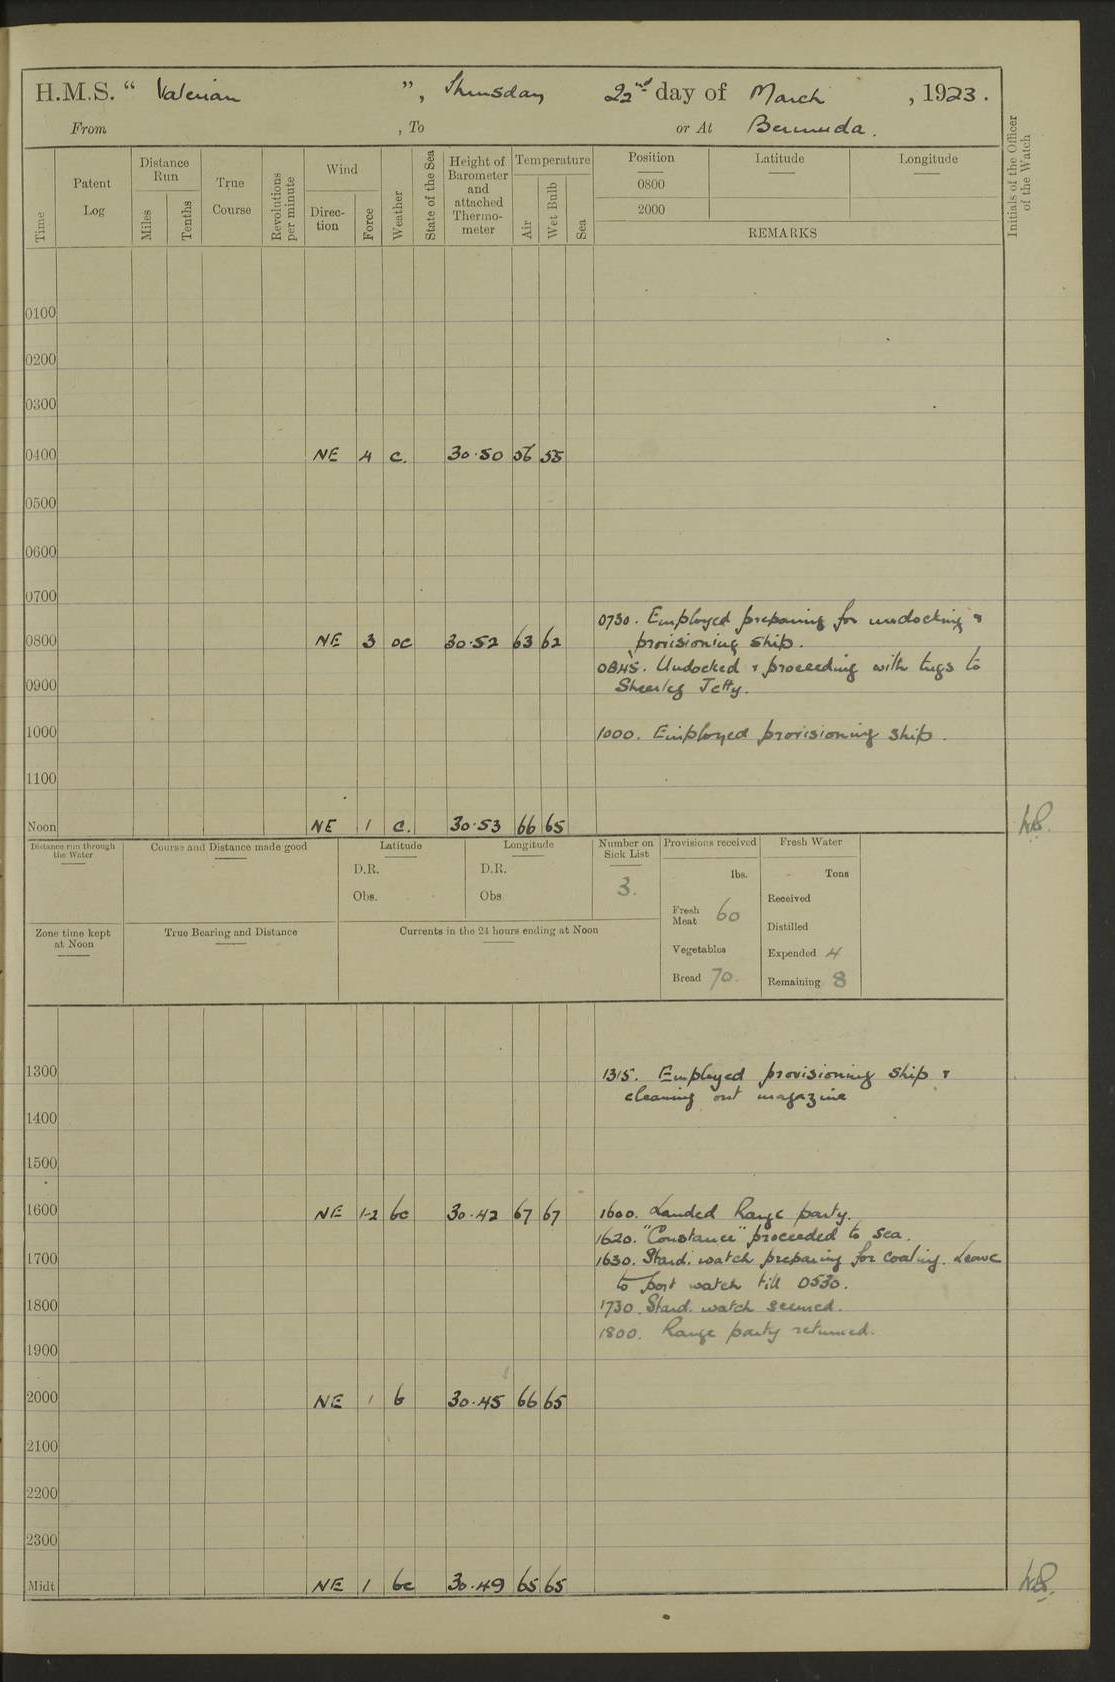 H.M.S. “ Valerian ”, Thursday 22nd day of March , 1923.
From , To or At Bermuda.
Time
Patent Log
Distance Run
Miles
Tenths
True Course
Revolutions per minute
Wind
Direction
Force
Weather
State of the Sea
Height of Barometer and attached Thermometer
Temperature
Air
Wet Bulb
Sea
Position
0800
2000
Latitude
Longitude
REMARKS
Initials of the Officer of the Watch
0100
0200
0300
0400 NE 4 c. 30.50 56 55
0500
0600
0700
0730. Employed preparing for undocking &
provisioning ship.
0800 NE 3 oc 30.52 63 62
0845. Undocked & proceeding with tugs to
Sheerleg Jetty.
0900
1000 1000. Employed provisioning ship.
1100
Noon NE 1 c. 30.53 66 65
Distance run through the Water
Course and Distance made good
Latitude
D.R.
Obs.
Longitude
D.R.
Obs
Number on Sick List
3.
Provisions received
lbs.
Fresh Meat 60
Vegetables
Bread 70.
Fresh Water
Tons
Received
Distilled
Expended 4
Remaining 8
Zone time kept at Noon
True Bearing and Distance
Currents in the 24 hours ending at Noon
1300 1315. Employed provisioning ship &
cleaning out magazine
1400
1500
1600 NE 1-2 bc 30.42 67 67 1600. Landed Range party.
1620. "Constance" proceeded to sea.
1700 1630. Stard. watch preparing for coaling. Leave
to port watch till 0530.
1800 1730. Stard. watch secured.
1800. Range party returned.
1900
2000 NE 1 b 30.45 66 65
2100
2200
2300
Midt NE 1 bc 30.49 65 65